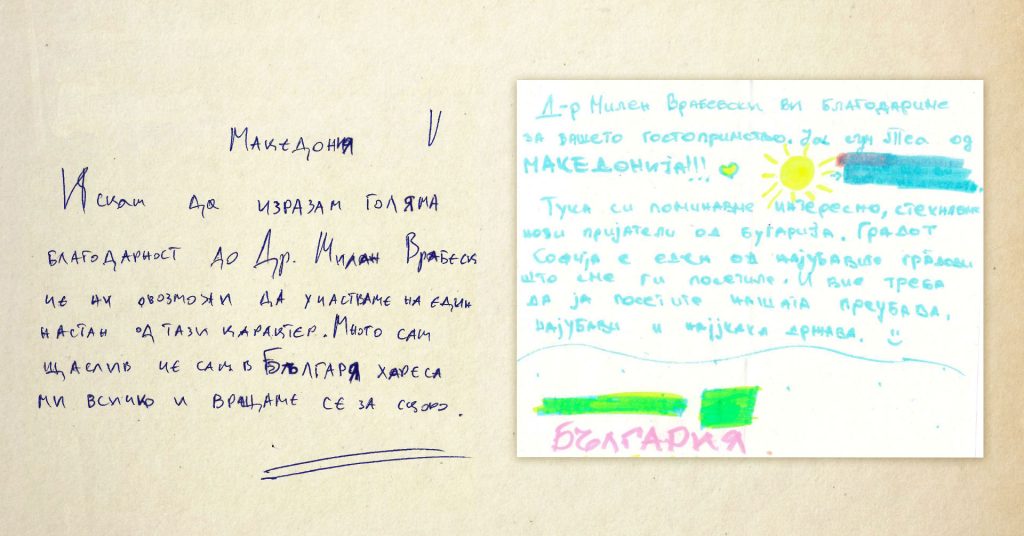 Македония V
Искам да изразам голяма
благодарност до Др. Милан Врабеск
че ни овозможи да участваме на един
настан од тази карактер. Много сам
щаслив че сам в Българя хареса
ми всичко и вращаме се за скоро.
Д-р Милен Врабевски ви благодариме
за вашето гостопримство. Јас сум Теа од
МАКЕДОНИЈА!!!
Тука си поминавме интересно, стекнавме
нови пријатели од Бугарија. Градот
Софија е еден од најубавите градови
што сме ги посетиле. И вие треба
да ја посетите нашата преубава,
најубави и најјкака држава.
БЪЛГАРИЯ